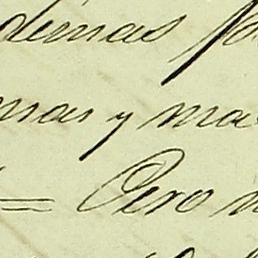 demas
mas y ma
= Pero n